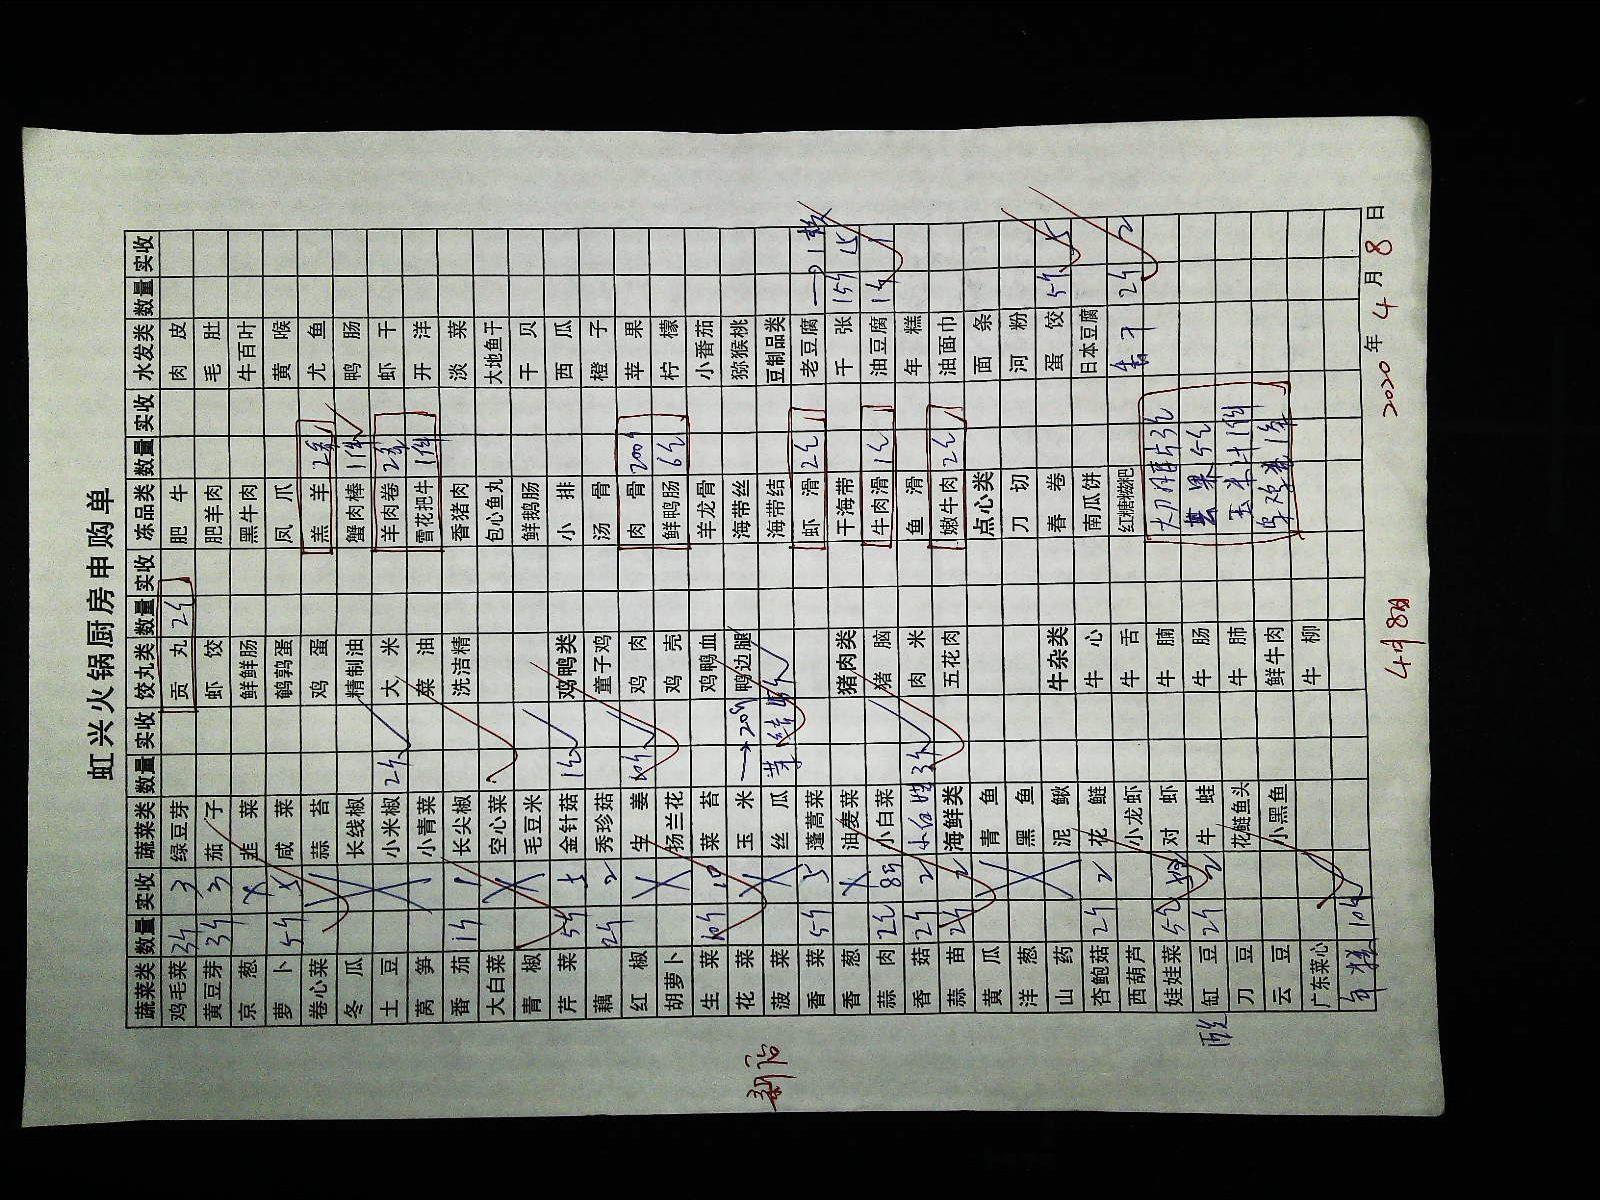 虹兴火锅厨房申购单
蔬菜类 数量 实收 蔬菜类 数量 实收 饺丸类 数量 实收 冻品类 数量 实收 水发类 数量 实收
鸡毛菜 3斤 3 绿豆芽 贡丸 2包 肥牛 肉皮
黄豆芽 3斤 3 茄子 虾饺 肥羊肉 毛肚
京葱 韭菜 鲜鲜肠 黑牛肉 牛百叶
萝卜 5斤 5 咸菜 鹌鹑蛋 凤爪 黄喉
卷心菜 蒜苔 鸡蛋 羔羊 2条 尤鱼
冬瓜 长线椒 精制油 蟹肉棒 1件 鸭肠
土豆 小米椒 2斤 大米 羊肉卷 2条 虾干
莴笋 小青菜 菜油 雪花把牛 1件 开洋
番茄 1斤 1 长尖椒 洗洁精 香猪肉 淡菜
大白菜 空心菜 包心鱼丸 大地鱼干
青椒 毛豆米 鲜鹅肠 干贝
芹菜 5斤 5 金针菇 1包 鸡鸭类 小排 西瓜
藕 2斤 2 秀珍菇 童子鸡 汤骨 橙子
红椒 生姜 10斤 鸡肉 肉骨 200斤 苹果
胡萝卜 扬兰花 鸡壳 鲜鸭肠 6包 柠檬
生菜 10斤 10 菜苔 鸡鸭血 羊龙骨 小番茄
花菜 玉米 →20斤 鸭边腿 海带丝 猕猴桃
菠菜 丝瓜 海带结 豆制品类
香菜 5斤 5 蓬蒿菜 虾滑 2包 老豆腐 →1板
香葱 油麦菜 猪肉类 干海带 千张 15斤 15
蒜肉 2包 小白菜 猪脑 牛肉滑 1包 油豆腐 1斤 1
香菇 2斤 2 3斤 肉米 鱼滑 年糕
蒜苗 2斤 2 海鲜类 五花肉 嫩牛肉 2包 油面巾
黄瓜 青鱼 点心类 面条
洋葱 黑鱼 刀切 河粉
山药 泥鳅 牛杂类 春卷 蛋饺 5斤 5
杏鲍菇 2斤 2 花鲢 牛心 南瓜饼 日本豆腐
西葫芦 小龙虾 牛舌 红糖糍粑 2斤 2
娃娃菜 5包 对虾 牛腩
豇豆 2斤 2 牛蛙 牛肠
刀豆 花鲢鱼头 牛肺 玉米片 1件
云豆 小黑鱼 鲜牛肉
广东菜心 牛柳
年糕 10斤
2020年4月8日
4月8日